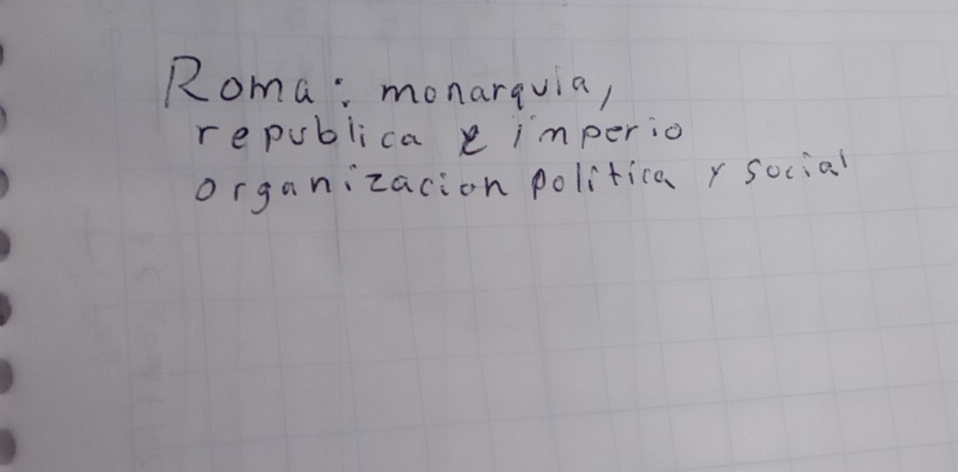 Roma: monarquia,
republica e imperio
organizacion política y social